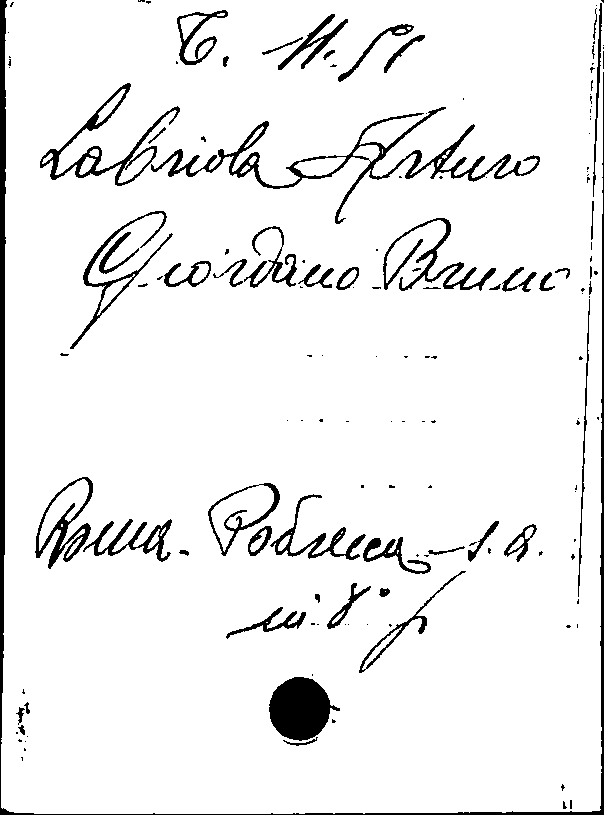 T. 11.51
Labriola Arturo
Giordano Bruno
Roma - Podrecca - s. a.
in 8° f